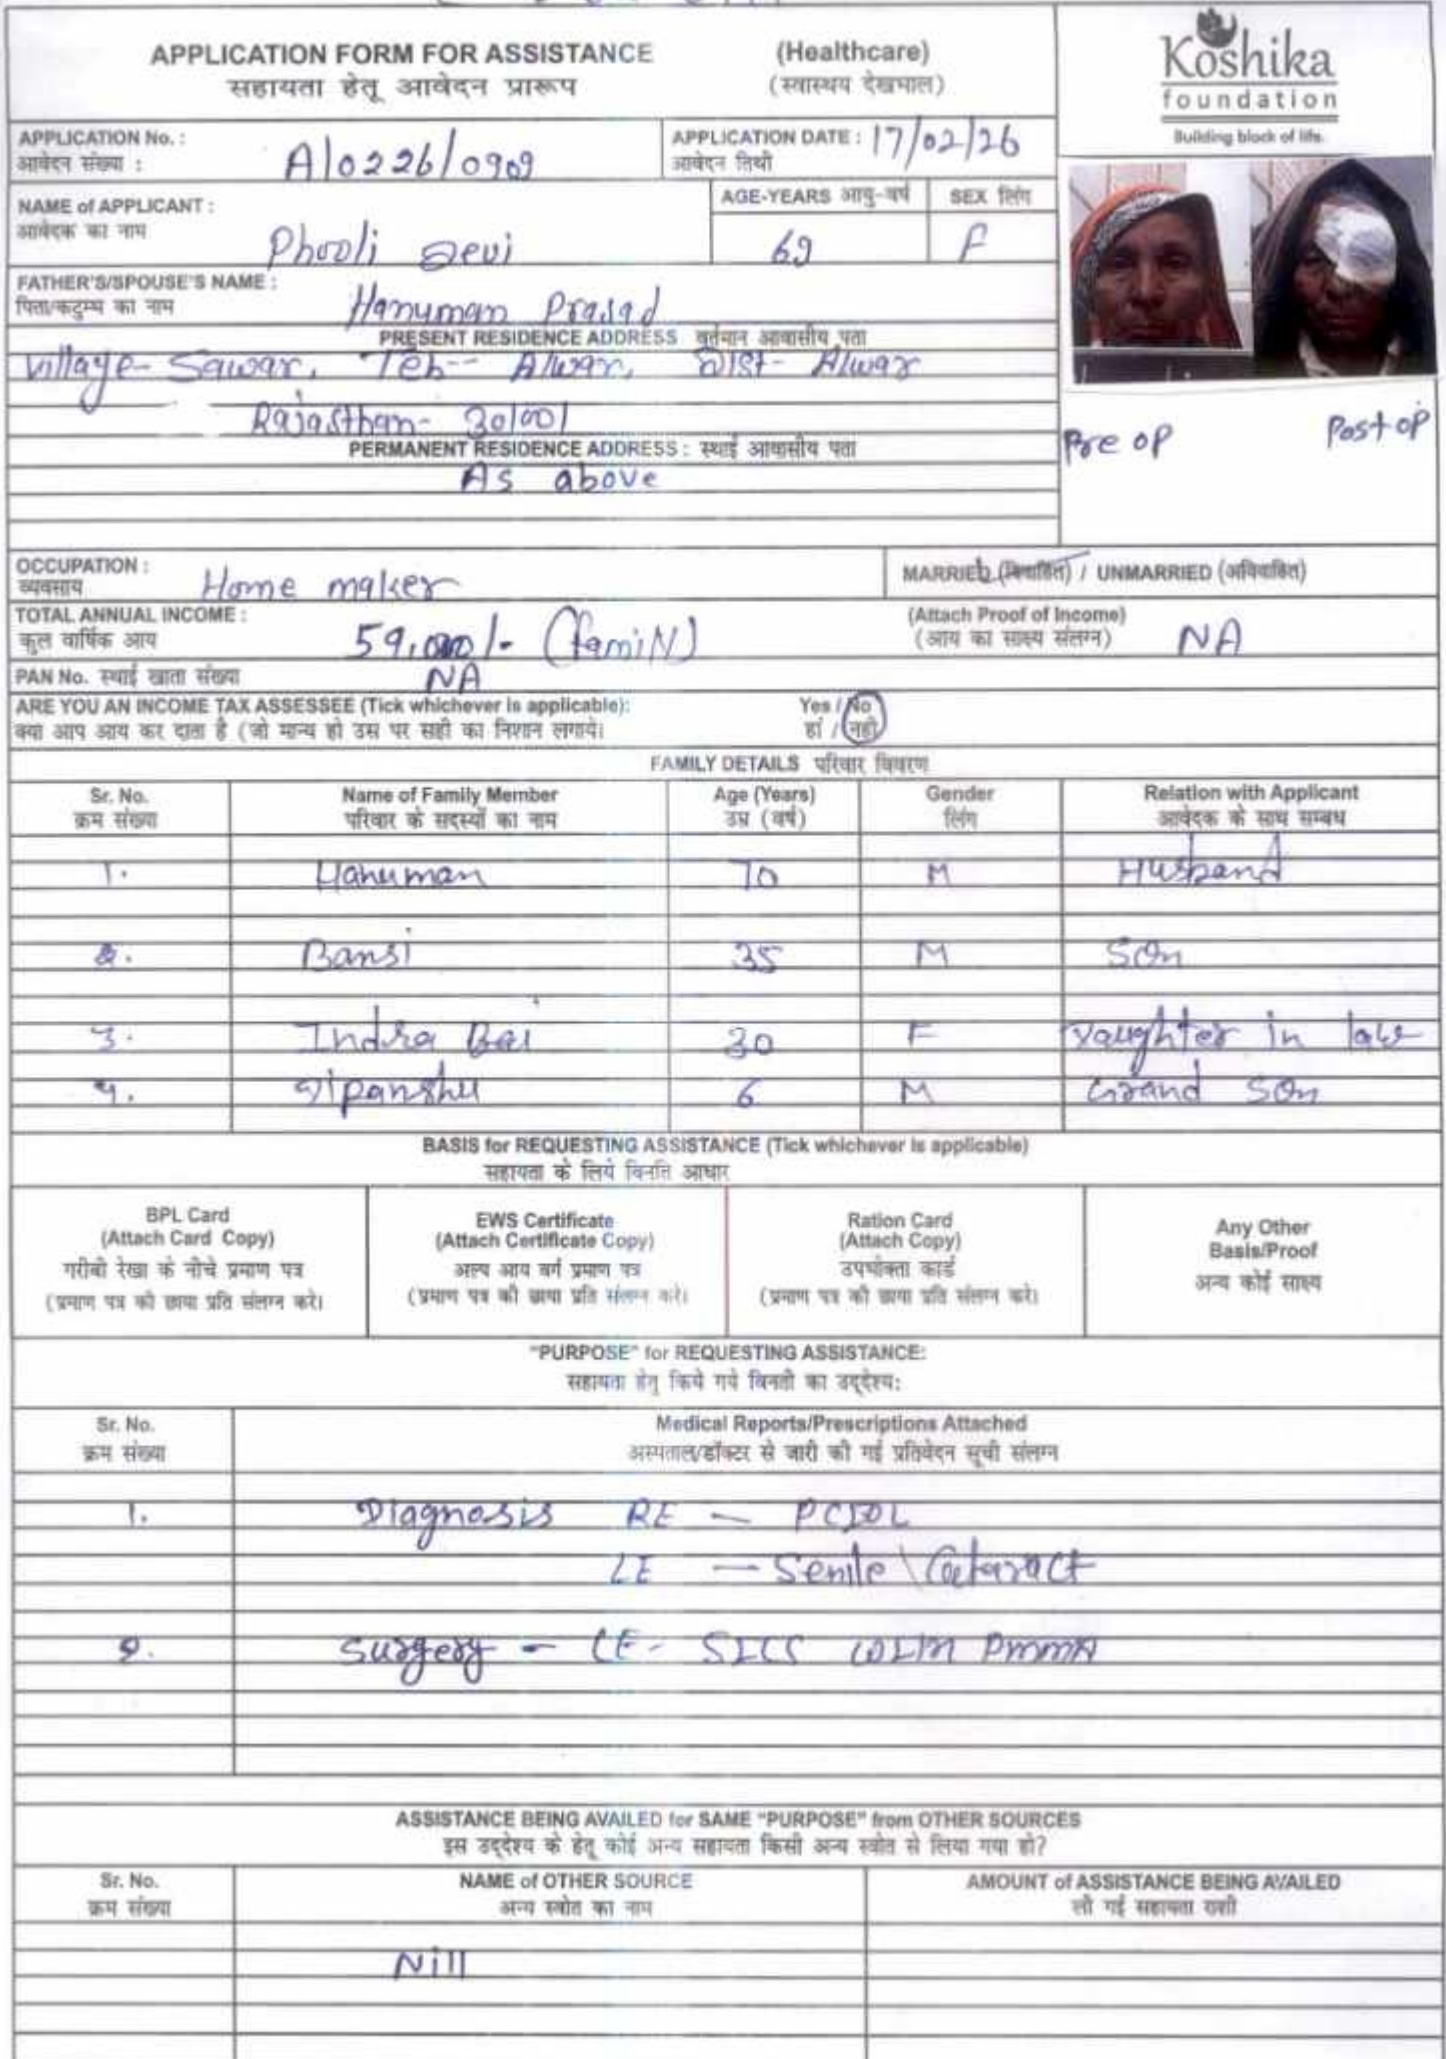 APPLICATION FORM FOR ASSISTANCE (Healthcare)
सहायता हेतू आवेदन प्रारूप (स्वास्थय देखभाल)
Koshika
foundation
Building block of life.
APPLICATION No. : A/0226/0909
आवेदन संख्या :
APPLICATION DATE : 17/02/26
आवेदन तिथी
NAME of APPLICANT :
आवेदक का नाम
Phooli Devi
AGE-YEARS आयु-वर्ष 69
SEX लिंग F
FATHER'S/SPOUSE'S NAME :
पिता/कटुम्ब का नाम
Hanuman Prasad
PRESENT RESIDENCE ADDRESS वर्तमान आवासीय पता
Village- Sawar, Teh-- Alwar, Dist- Alwar
Rajasthan- 301001
Pre op Post op
PERMANENT RESIDENCE ADDRESS : स्थाई आवासीय पता
As above
OCCUPATION :
व्यवसाय
Home maker
MARRIED (विवाहित) / UNMARRIED (अविवाहित)
TOTAL ANNUAL INCOME :
कुल वार्षिक आय
59,000/- (family)
(Attach Proof of Income)
(आय का साक्ष्य संलग्न)
NA
PAN No. स्थाई खाता संख्या NA
ARE YOU AN INCOME TAX ASSESSEE (Tick whichever is applicable): Yes / No
क्या आप आय कर दाता है (जो मान्य हो उस पर सही का निशान लगाये। हां / नही
FAMILY DETAILS परिवार विवरण
Sr. No. Name of Family Member Age (Years) Gender Relation with Applicant
क्रम संख्या परिवार के सदस्यों का नाम उम्र (वर्ष) लिंग आवेदक के साथ सम्बध
1. Hanuman 70 M Husband
2. Bansi 35 M Son
3. Indra Bai 30 F Daughter in law
4. Dipanshu 6 M Grand Son
BASIS for REQUESTING ASSISTANCE (Tick whichever is applicable)
सहायता के लिये विनति आधार
BPL Card
(Attach Card Copy)
गरीबी रेखा के नीचे प्रमाण पत्र
(प्रमाण पत्र की छाया प्रति संलग्न करे।
EWS Certificate
(Attach Certificate Copy)
अल्प आय वर्ग प्रमाण पत्र
(प्रमाण पत्र की छाया प्रति संलग्न करे।
Ration Card
(Attach Copy)
उपभोक्ता कार्ड
(प्रमाण पत्र की छाया प्रति संलग्न करे।
Any Other
Basis/Proof
अन्य कोई साक्ष्य
"PURPOSE" for REQUESTING ASSISTANCE:
सहायता हेतु किये गये विनती का उद्देश्य:
Sr. No. Medical Reports/Prescriptions Attached
क्रम संख्या अस्पताल/डॉक्टर से जारी की गई प्रतिवेदन सूची संलग्न
1. Diagnosis RE - PCIOL
LE - Senile Cataract
2. Surgery - LE- SICS PMMA
ASSISTANCE BEING AVAILED for SAME "PURPOSE" from OTHER SOURCES
इस उद्देश्य के हेतू कोई अन्य सहायता किसी अन्य स्त्रोत से लिया गया हो?
Sr. No. NAME of OTHER SOURCE AMOUNT of ASSISTANCE BEING AVAILED
क्रम संख्या अन्य स्त्रोत का नाम ली गई सहायता राशी
Nill